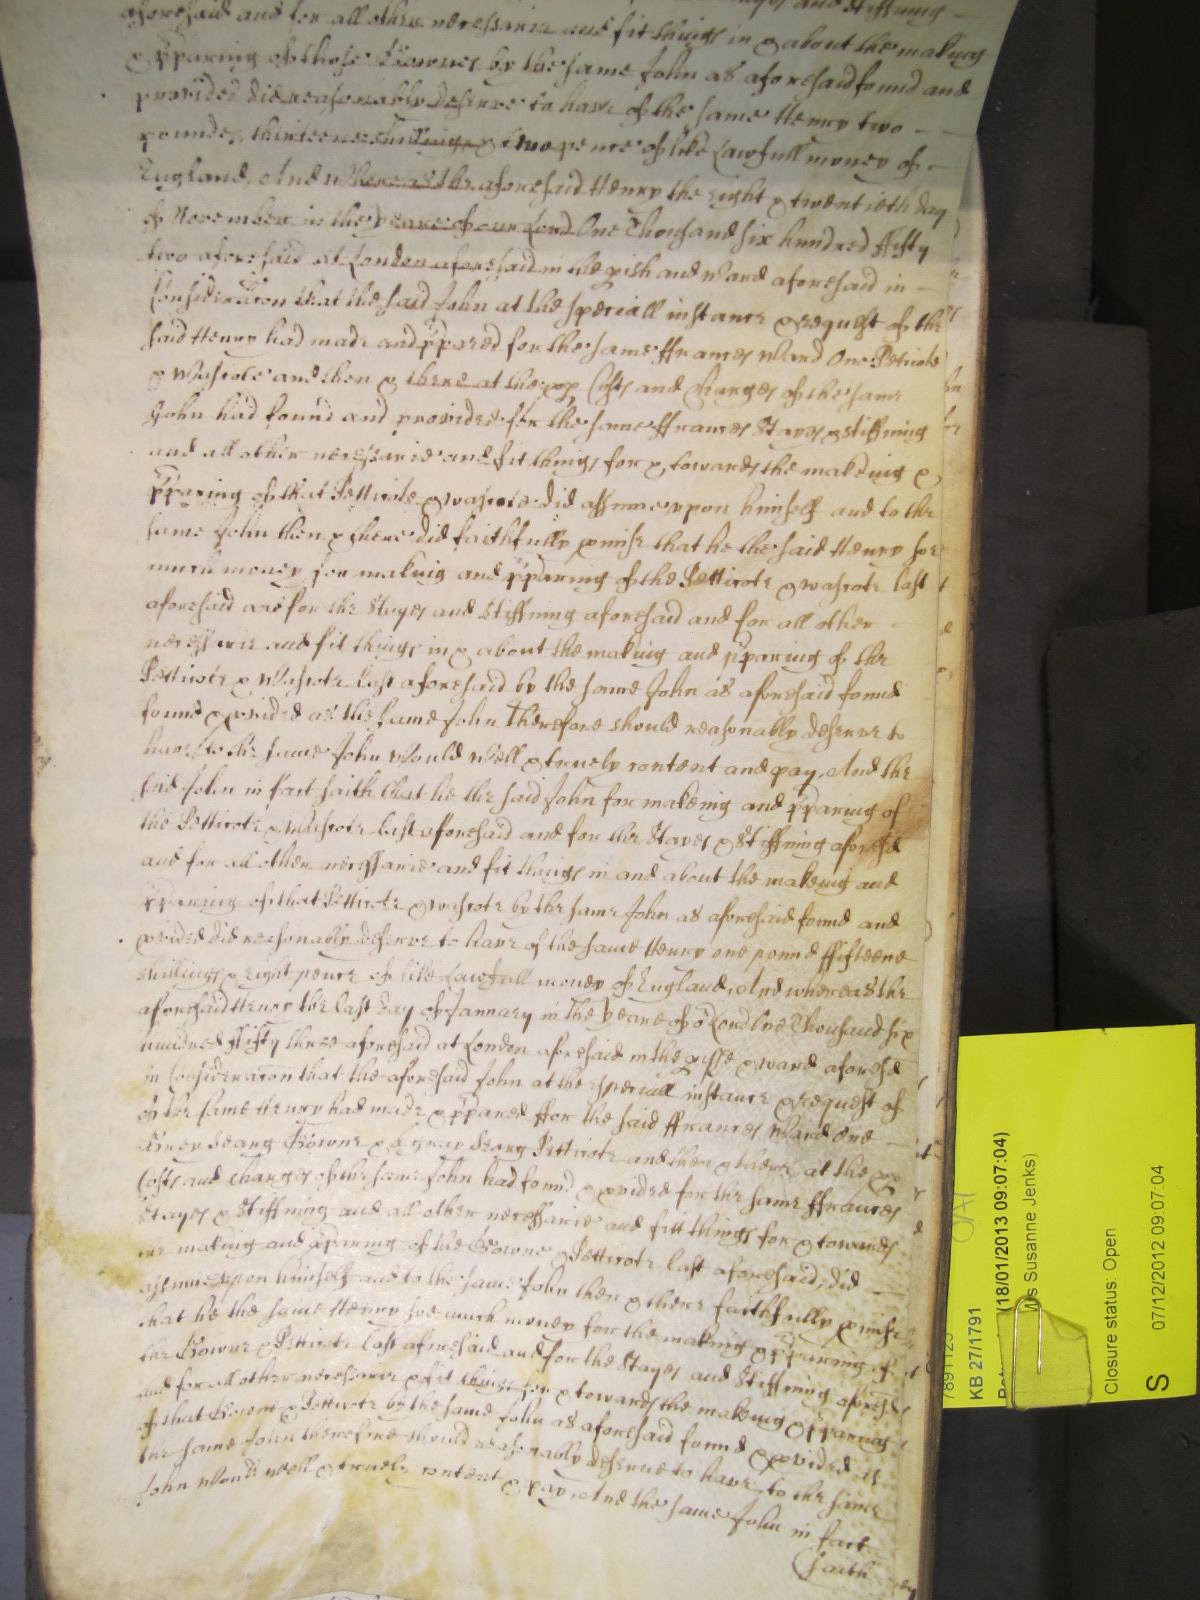 Stayes and stiffning
aforesaid and for all other necessarie and fit things in & about the making
& pparing of those Gownes by the same John as aforesaid found and
provided did reasonably deserve to have of the same Henry two
pounds thirteene shillings & two pence of like Lawfull money of
England, And whereas the aforesaid Henry the eight & twentieth day
of November in the yeare of our Lord One Thousand six hundred ffifty
two aforesaid at London aforesaid in the pish and Ward aforesaid in
Consideracon that the said John at the speciall instance & request of the
said Henry had made and ppared for the same ffrances Ward One Petticote
& Wascote and then & there at the pp Costs and charges of the same
John had found and provided for the same ffrances Stayes & stiffning
and all other necessarie and fit things for & towards the makeing &
pparing of that Petticote & wascote did assume upon himself and to the
same John then & there did faithfully pmise that he the said Henry soe
much money for makeing and pparing of the Petticote & wascote last
aforesaid and for the Stayes and stiffning aforesaid and for all other
necessarie and fit things in & about the making and pparing of the
Petticote & Wascote last aforesaid by the same John as aforesaid found
found & pvided as the same John Therefore should reasonably deserve to
have, to the same John Would Well & truely content and pay, And the
said John in fact saith that he the said John for makeing and pparing of
the Petticote & Wascote last aforesaid and for the Stayes & Stiffning aforesd
and for all other necessarie and fit things in and about the makeing and
pparing of that Petticote & wascote by the same John as aforesaid found and
pvided did reasonably deserve to have of the same Henry one pound ffifteene
shillings & eight pence of like Lawfull money of England, And whereas the
aforesaid Henry the last day of January in the Yeare of or Lord One Thousand six
hundred ffifty three aforesaid at London aforesaid in the pishe & ward aforesd
in Consideracon that the aforesaid John at the speciall instance & request of
of the same Henry had made & ppared ffor the said ffrances Ward One
Grey Gowne & a gray Petticote and then & there at the pp
Costs and charges of the same John had found & pvided for the same ffrances
Stayes & Stiffning and all other necessarie and fitt things for & towards
the making and pparing of the Gowne & Petticote last aforesaid, did
assume upon himself and to the same John then & there faithfully pmise
that he the same Henry soe much money for the making & pparing of
the Gowne & Petticote last aforesaid and for the Stayes and Stiffning aforesd
and for all other necessarie & fit things for & towards the makeing & pparing
of that Gowne & Petticote by the same John as aforesaid found & pvided as
the same John therefore should reasonably deserve to have, to the same
John Would well & truely content & pay, And the same John in fact
saith
KB 27/1791
(18/01/2013 09:07:04)
Ms Susanne Jenks)
Closure status: Open
S 07/12/2012 09:07:04